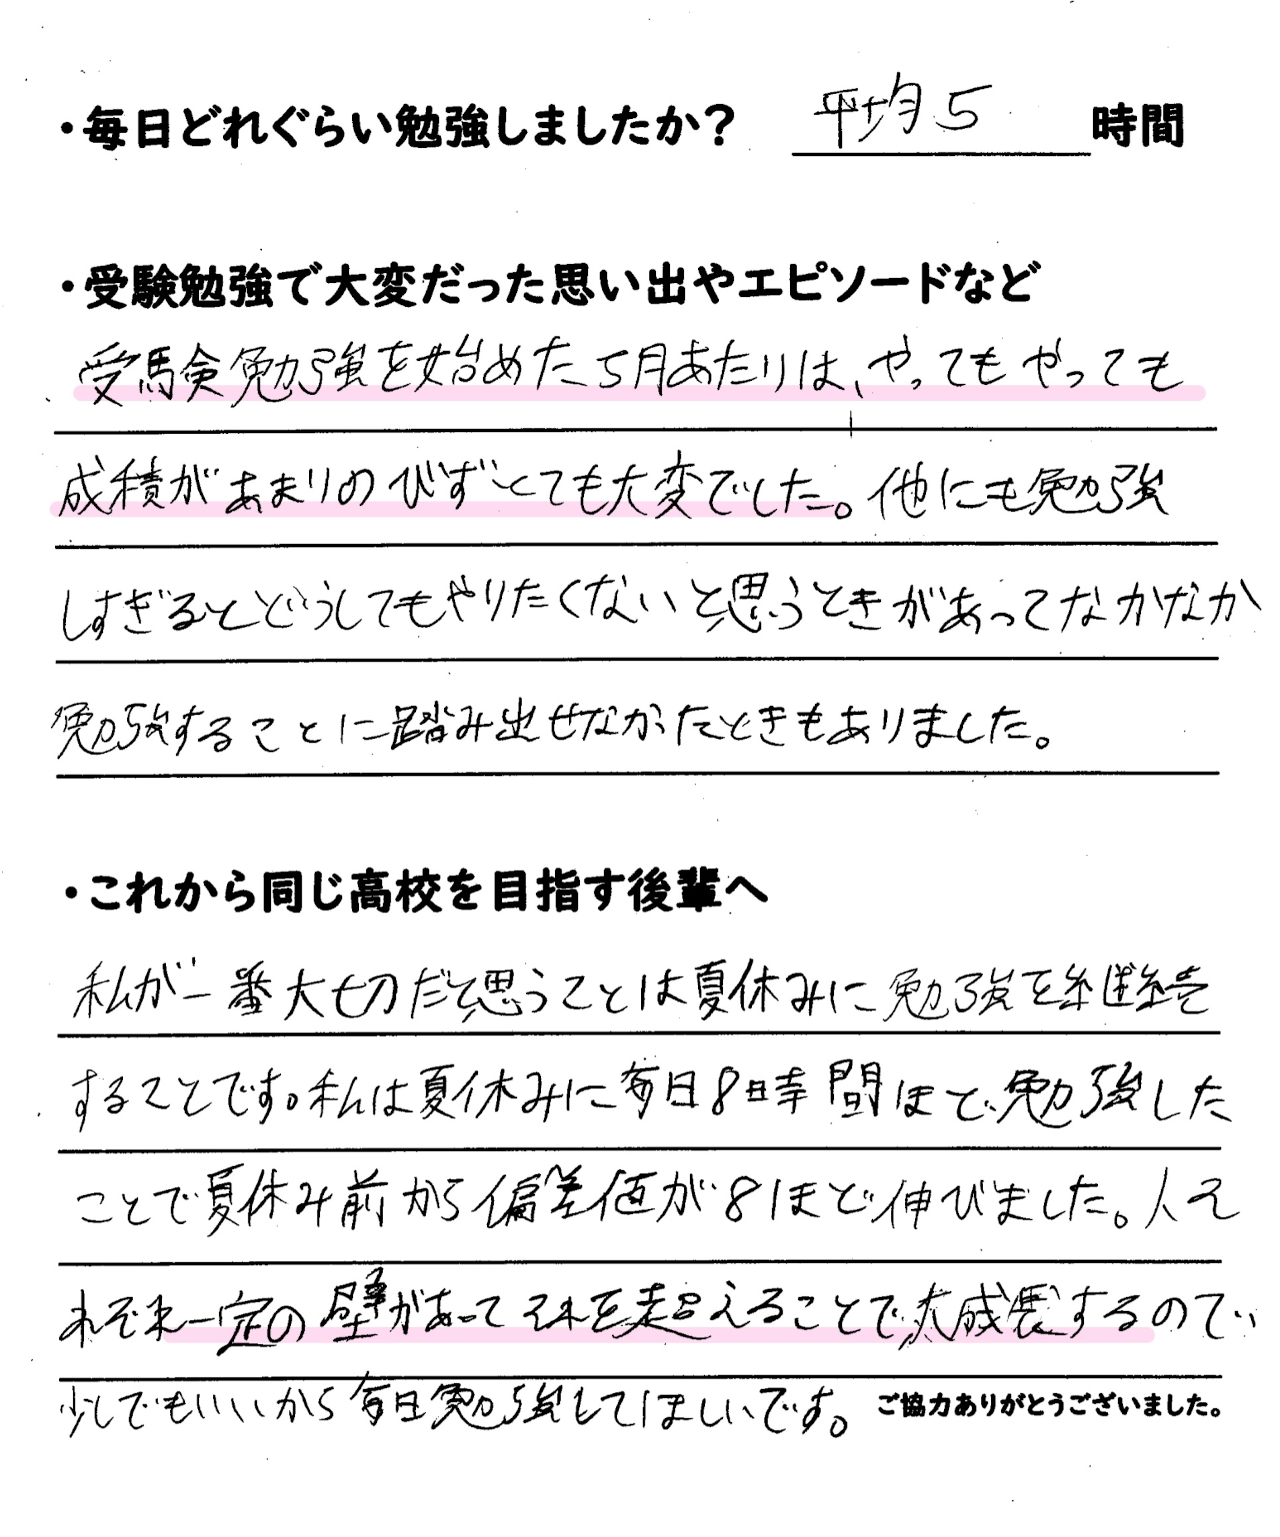 ・毎日どれぐらい勉強しましたか？ 平均5 時間
・受験勉強で大変だった思い出やエピソードなど
受験勉強を始めた5月あたりは、やってもやっても
成積があまりのびずとても大変でした。他にも勉強
しすぎるとどうしてもやりたくないと思うときがあってなかなか
勉強することに踏み出せなかったときもありました。
・これから同じ高校を目指す後輩へ
私が一番大切だと思うことは夏休みに勉強を継続
することです。私は夏休みに毎日8時間ほど勉強した
ことで夏休み前から偏差値が8ほど伸びました。人そ
れぞれ一定の壁があってそれを超えることで大成長するので
少しでもいいから毎日勉強してほしいです。 ご協力ありがとうございました。